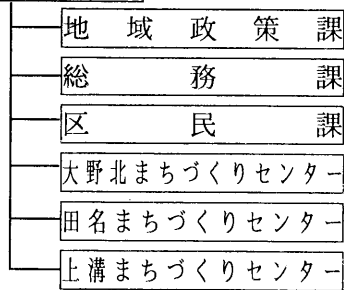 地域政策課
総務課
区民課
大野北まちづくりセンター
田名まちづくりセンター
上溝まちづくりセンター